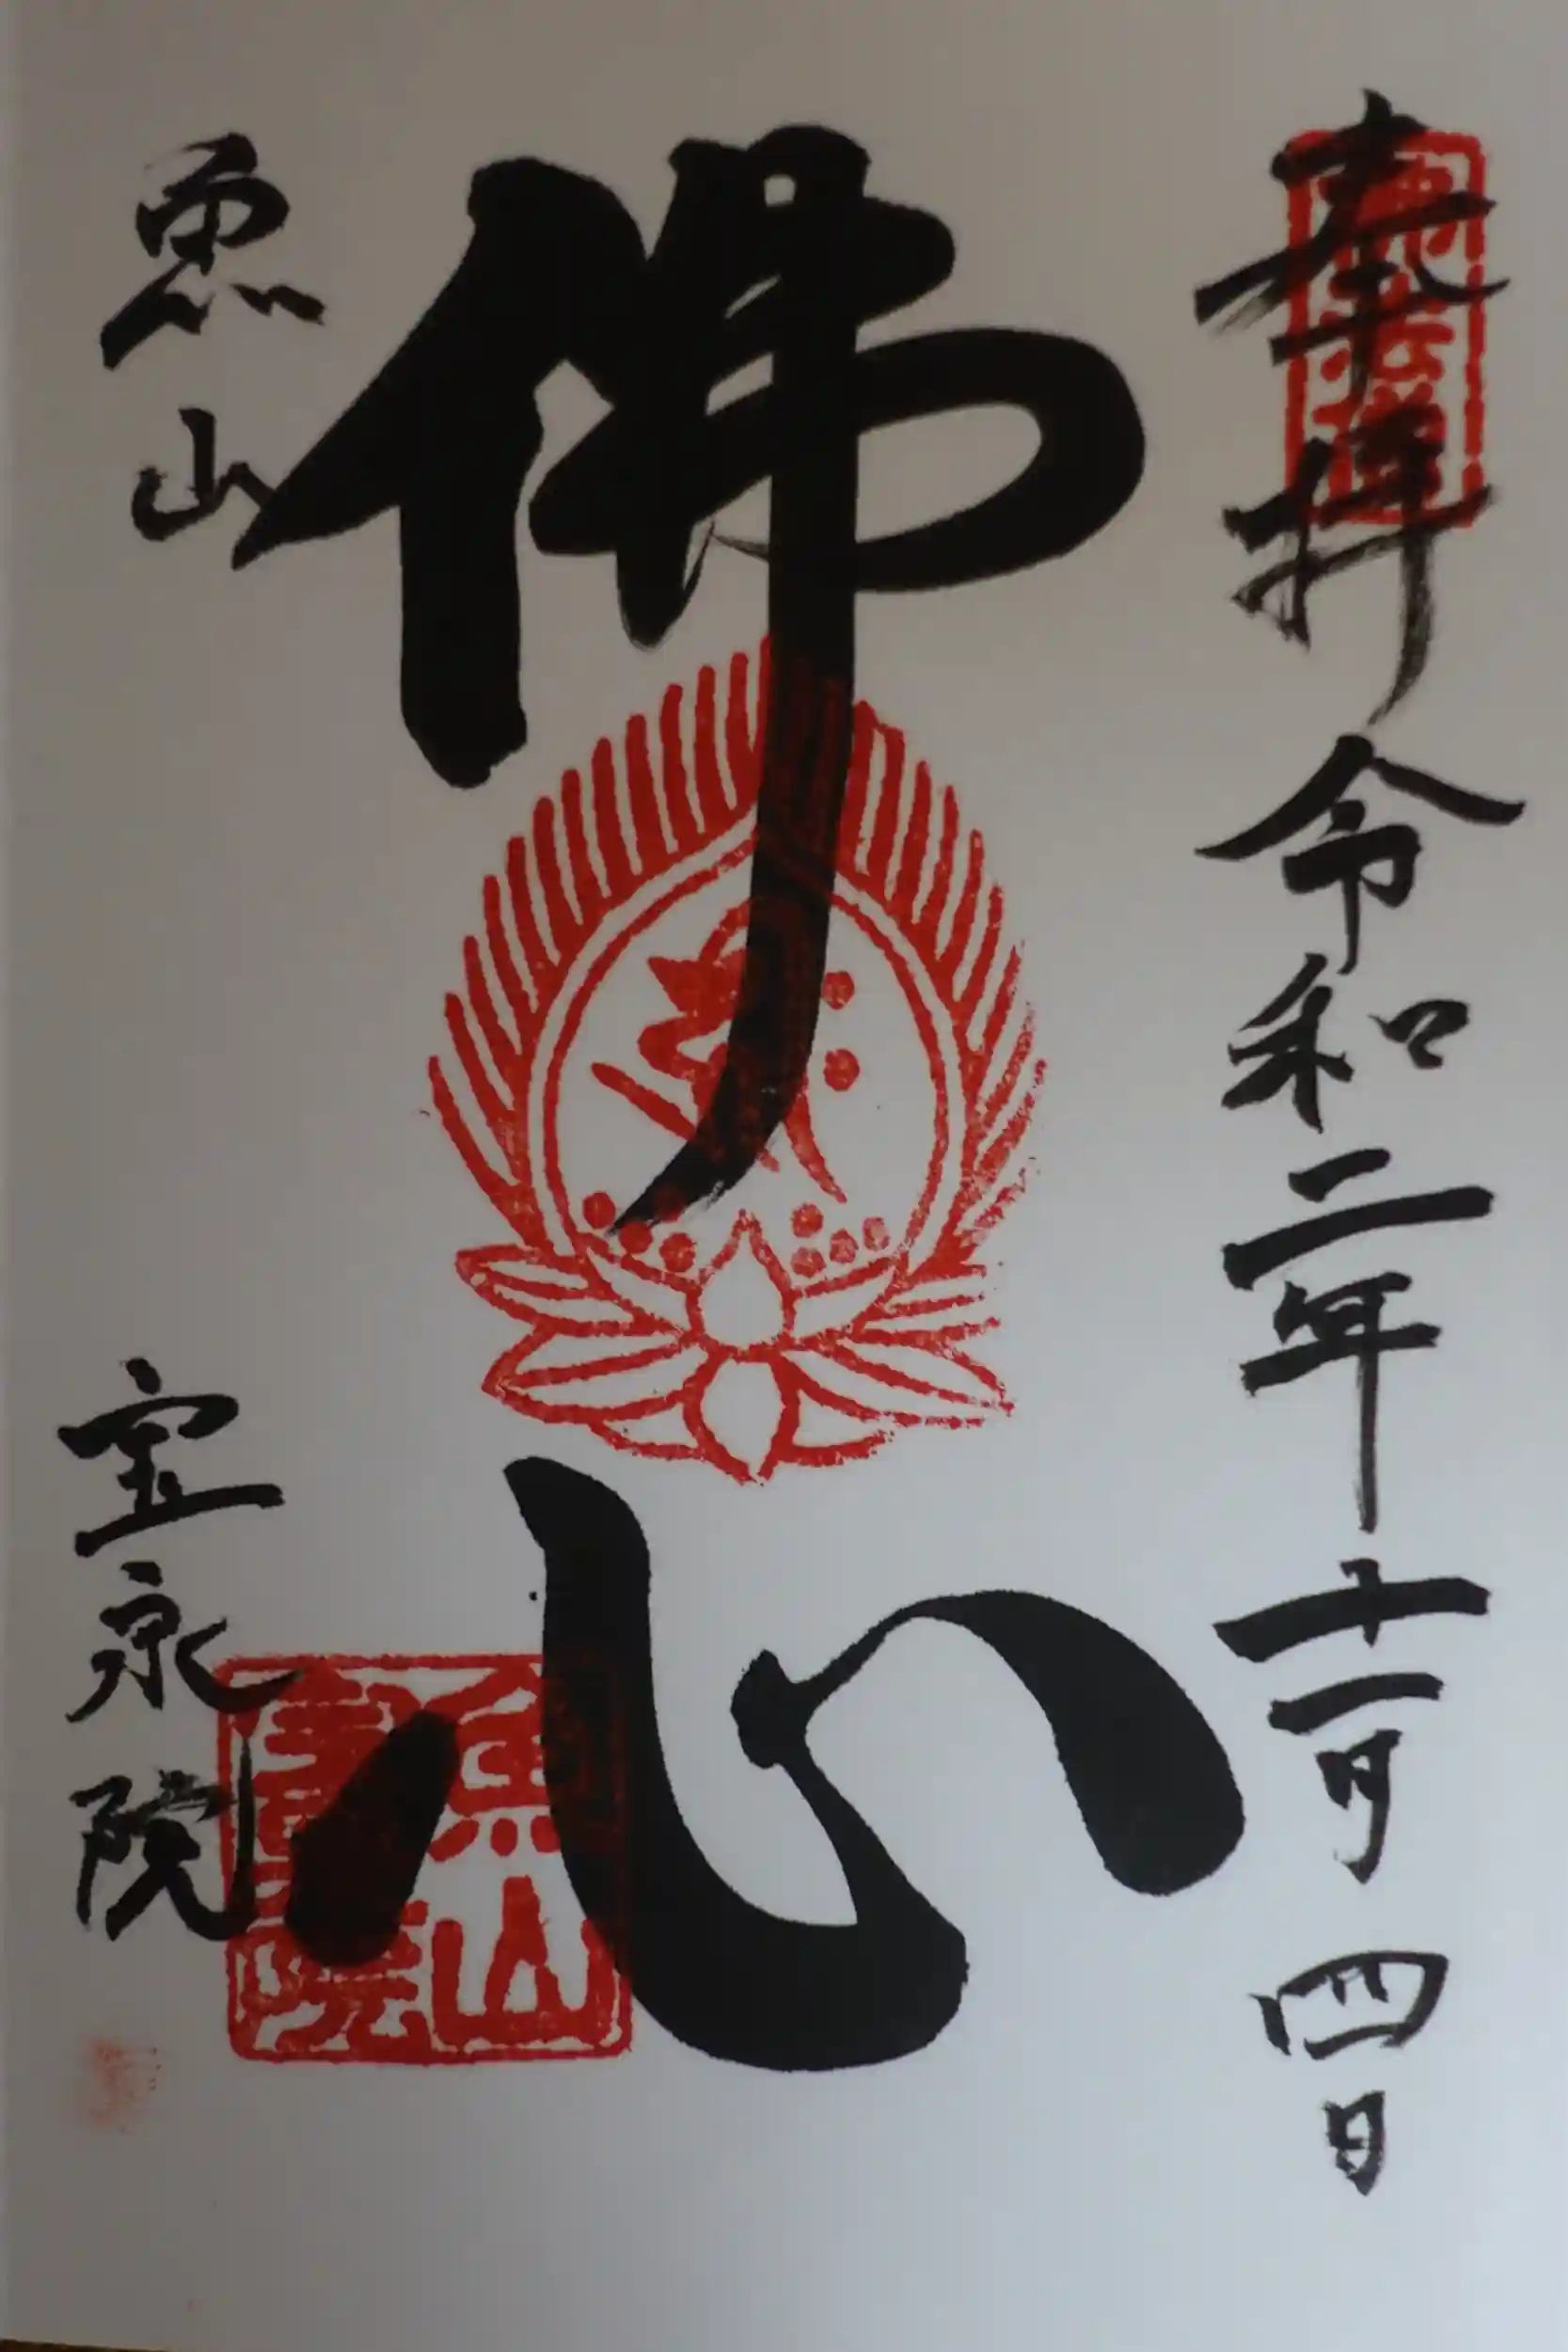 奉拝 令和二年十一月四日
佛心
魚山
宝泉院